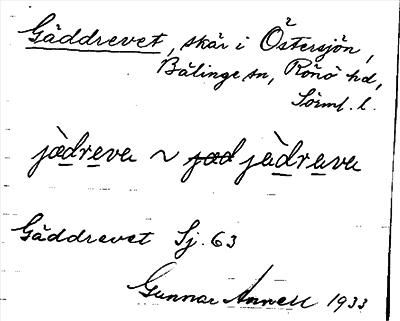 Gäddrevet, skär i Östersjön,
Bälinge sn, Rönö hd,
Sörml. l.
jàdreva ~ jàdrava
Gäddrevet Sj. 63
Gunnar Annell 1933